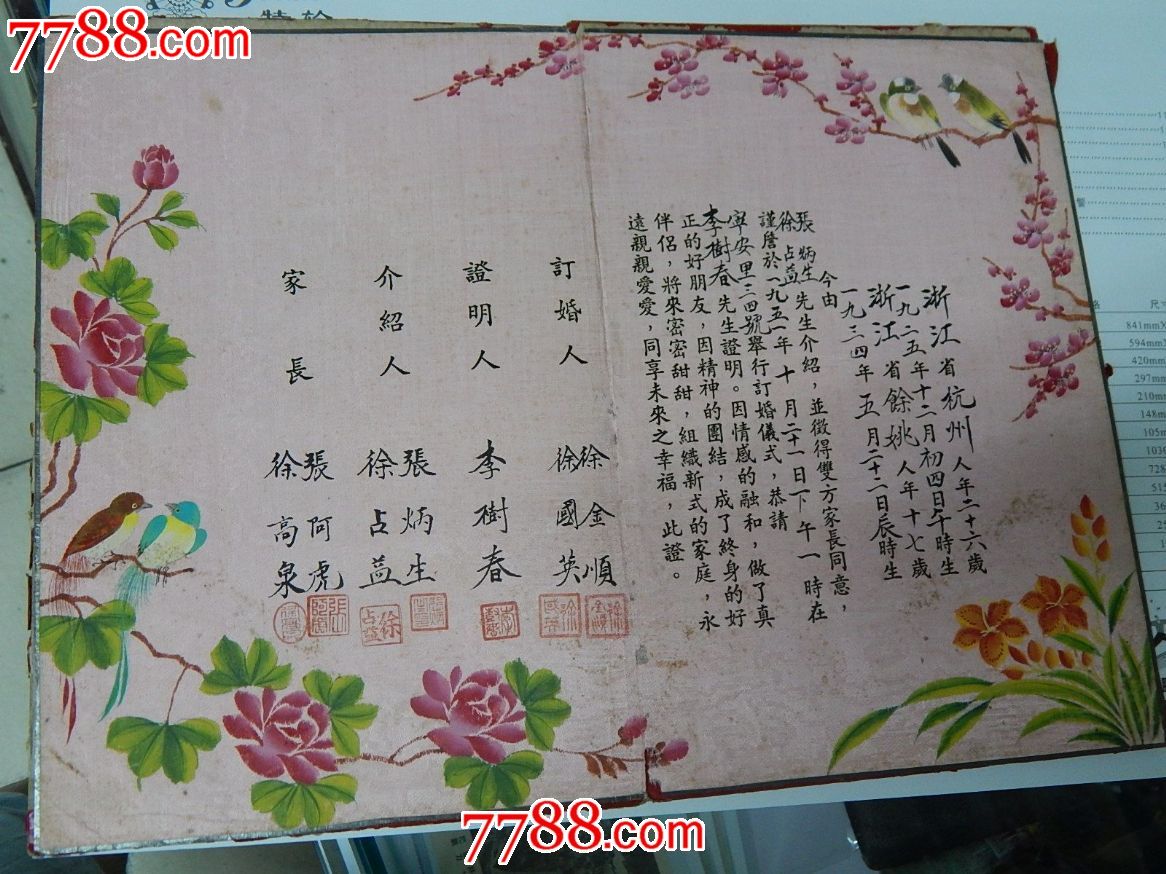 7788.com
特輸
浙江省杭州人年二十六歲
一九二五年十二月初四日午時生
浙江省餘姚人年十七歲
一九三四年五月二十二日辰時生
今由
張炳生
徐占益先生介紹，並徵得雙方家長同意，
謹詹於一九五一年十月二十一日下午一時在
寧安里三四號舉行訂婚儀式，恭請
李樹春先生證明。因情感的融和，做了真
正的好朋友，因精神的團結，成了終身的好
伴侶，將來密密甜甜，組織新式的家庭，永
遠親親愛愛，同享未來之幸福，此證。
訂婚人
徐金順
徐國英
證明人
李樹春
介紹人
張炳生
徐占益
家長
張阿虎
徐高泉
841mm
594mm
420mm
297mm
210mm
148m
7788.com